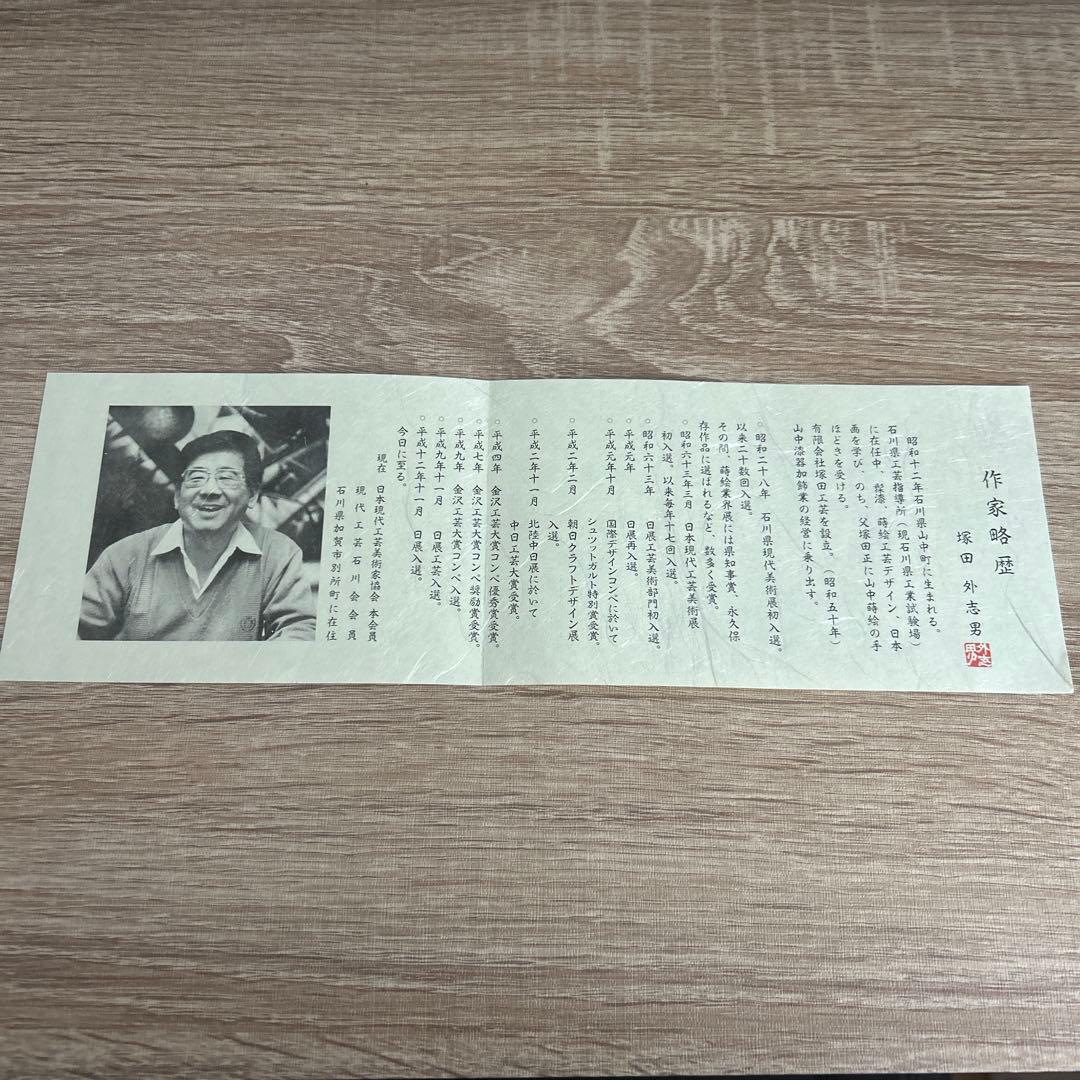 作家略歴
塚田 外志男
外志男
昭和十二年石川県山中町に生まれる。
石川県工芸指導所（現石川県工業試験場）
に在任中、髹漆、蒔絵工芸デザイン、日本
画を学び、のち、父塚田正に山中蒔絵の手
ほどきを受ける。
有限会社塚田工芸を設立。（昭和五十年）
山中漆器加飾業の経営に乗り出す。
○昭和二十八年 石川県現代美術展初入選。
以来二十数回入選。
その間、蒔絵業界展には県知事賞、永久保
存作品に選ばれるなど、数多く受賞。
○昭和六十三年三月 日本現代工芸美術展
初入選。以来毎年十七回入選。
○昭和六十三年 日展工芸美術部門初入選。
○平成元年 日展再入選。
○平成元年十月 国際デザインコンペに於いて
シュツットガルト特別賞受賞。
○平成二年二月 朝日クラフトデザイン展
入選。
○平成二年十一月 北陸中日展に於いて
中日工芸大賞受賞。
○平成四年 金沢工芸大賞コンペ優秀賞受賞。
○平成七年 金沢工芸大賞コンペ奨励賞受賞。
○平成九年 金沢工芸大賞コンペ入選。
○平成九年十一月 日展工芸入選。
○平成十二年十一月 日展入選。
今日に至る。
現在 日本現代工芸美術家協会 本会員
現代工芸石川会会員
石川県加賀市別所町に在住